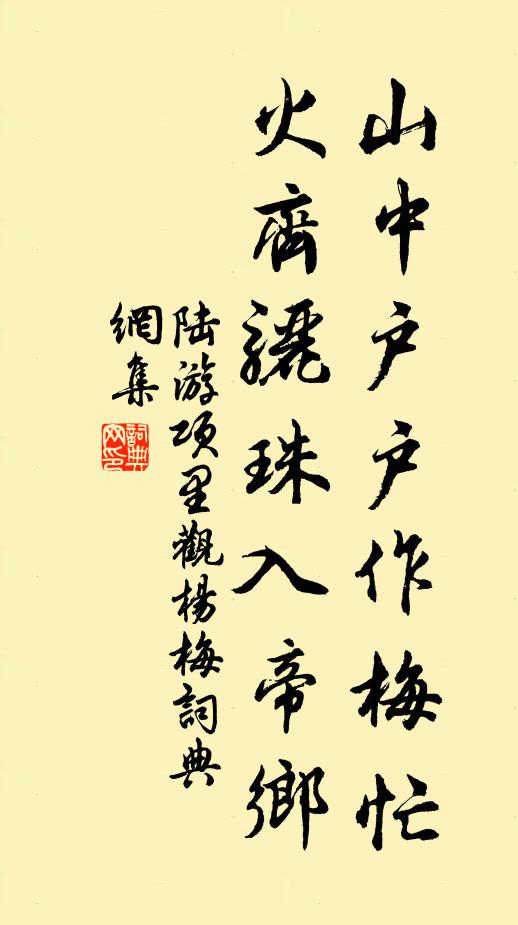 山中户户作梅忙
火齊驪珠入帝鄉
陆游项里觀楊梅詞典
網集
詞典
网印